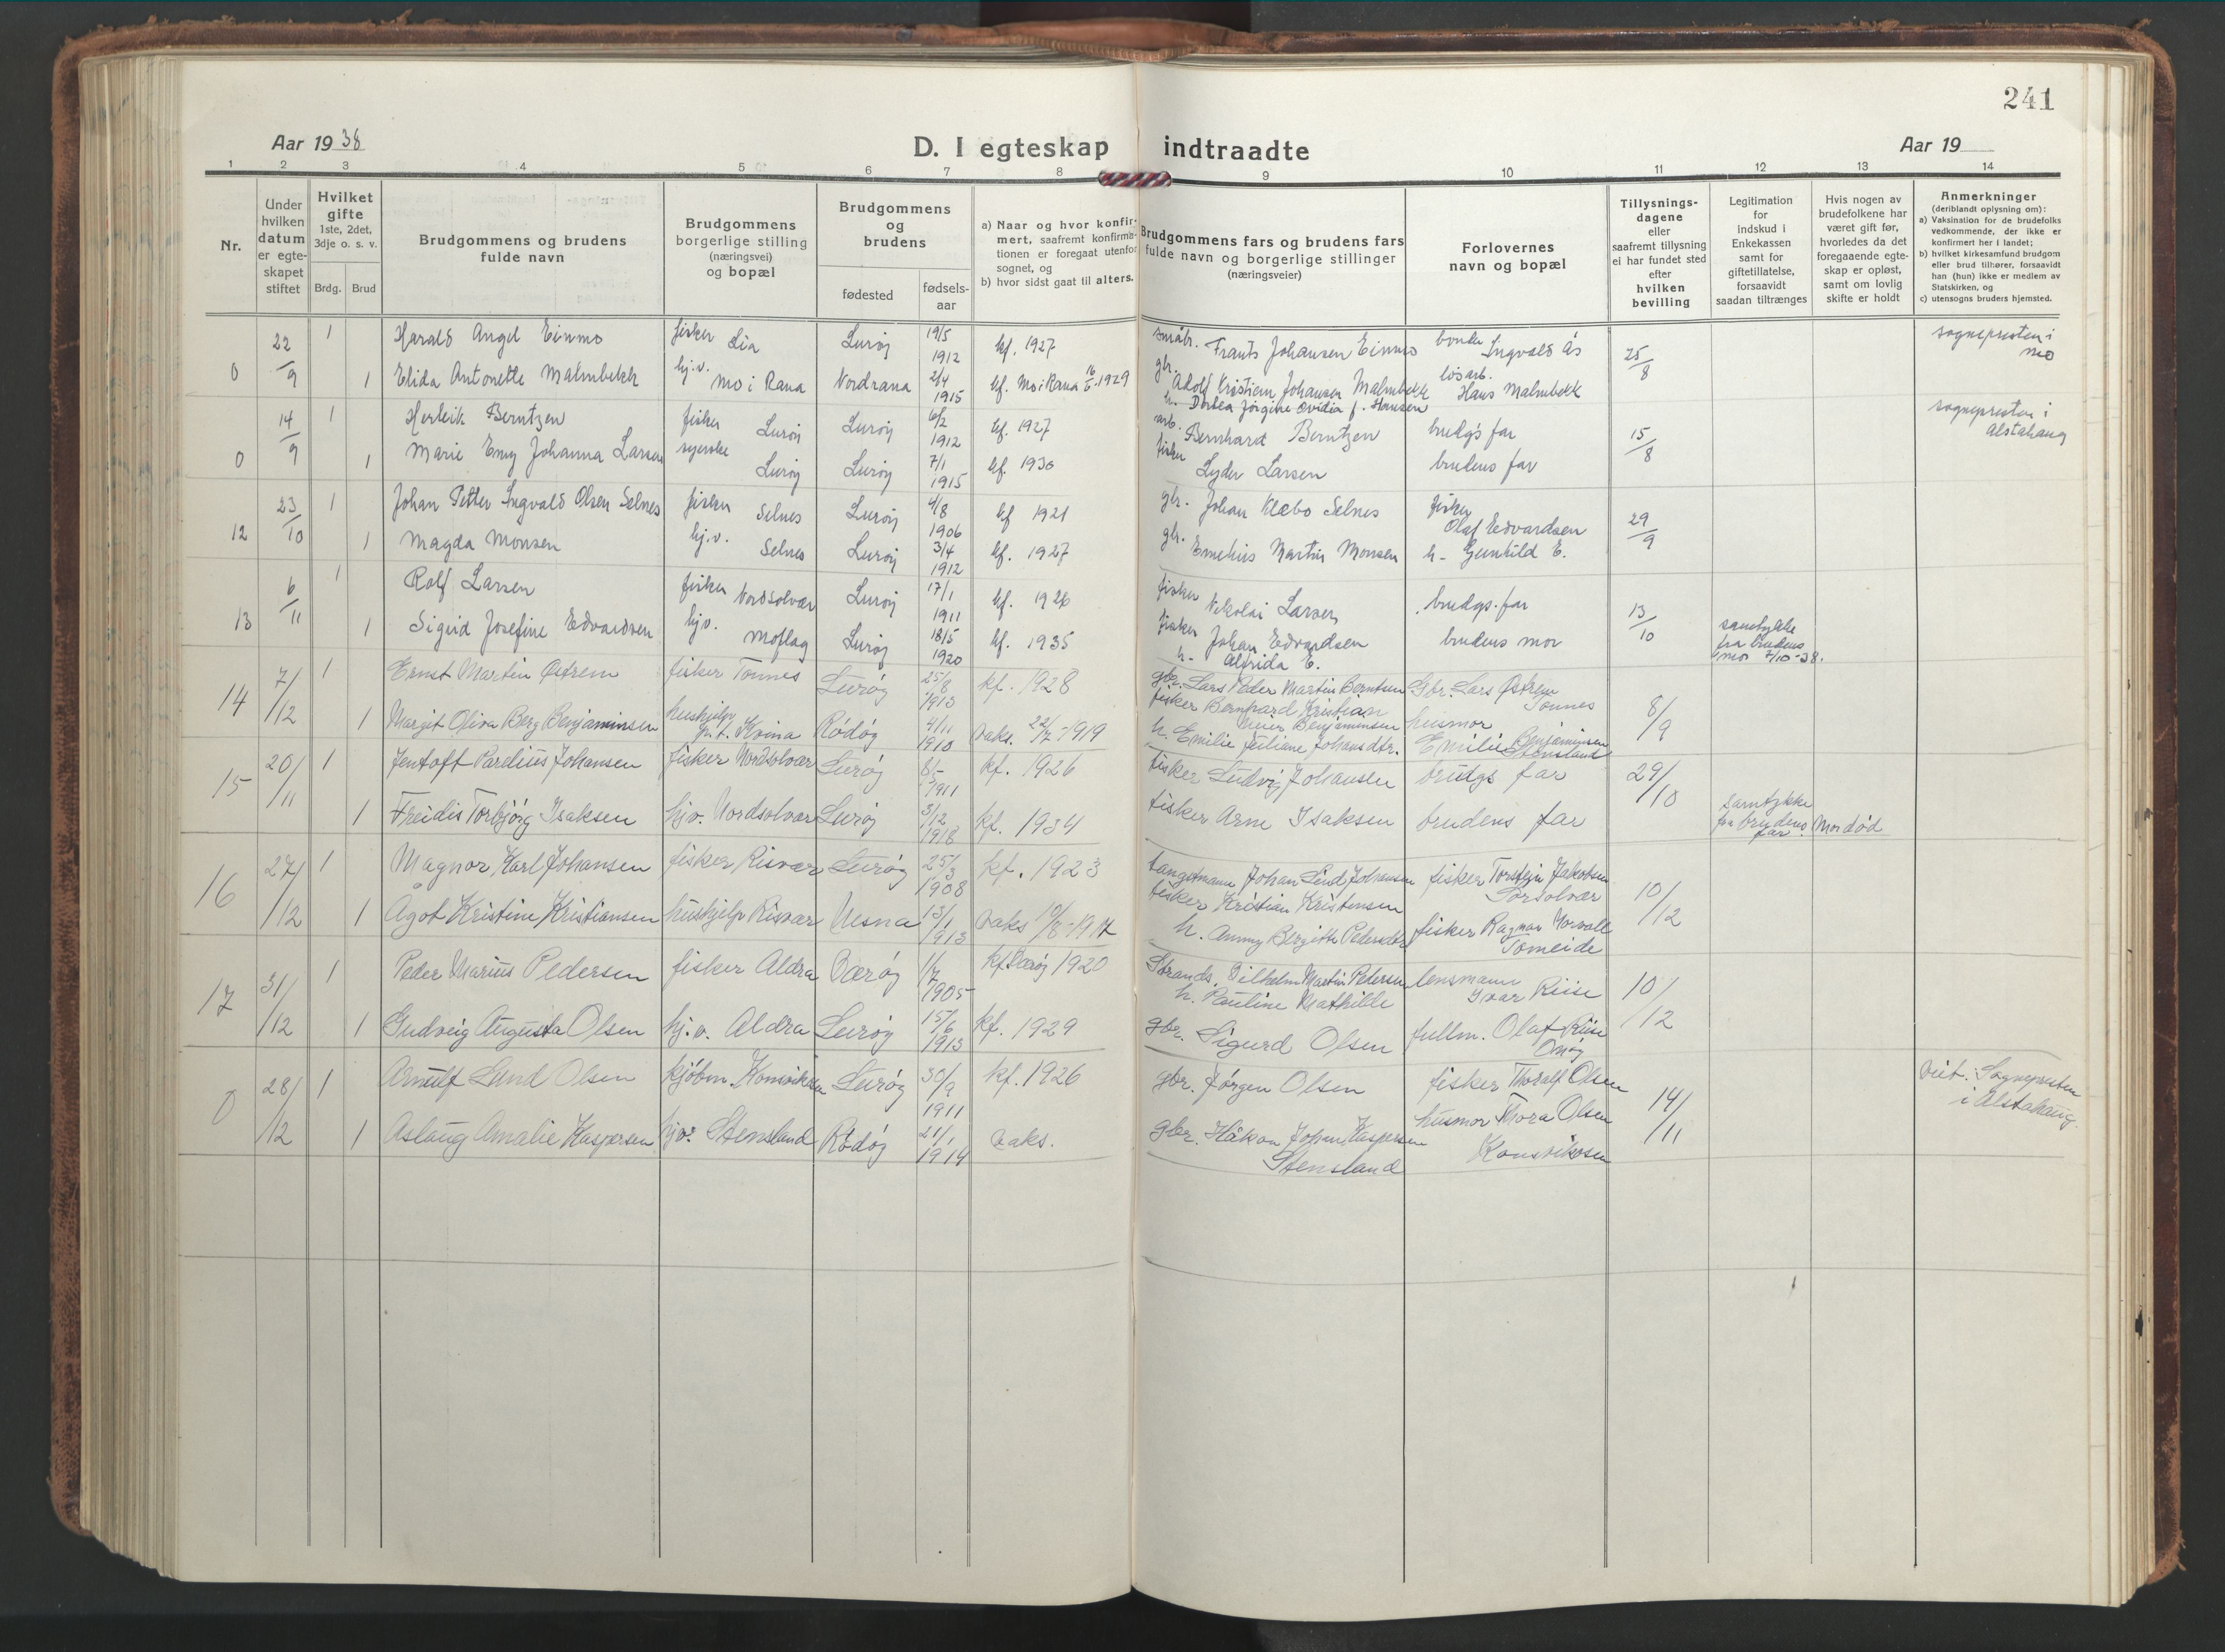 241
Aar 1938
D. I egteskap indtraadte
Aar 19
1 2 3 4 5 6 7 8 9 10 11 12 13 14
Nr.
Under hvilken datum er egteskapet stiftet
Hvilket gifte 1ste, 2det, 3dje o. s. v.
Brdg. Brud
Brudgommens og brudens fulde navn
Brudgommens borgerlige stilling (næringsvei) og bopæl
Brudgommens og brudens
fødested
fødsels-aar
a) Naar og hvor konfirmert, saafremt konfirmationen er foregaat utenfor sognet, og
b) hvor sidst gaat til alters.
Brudgommens fars og brudens fars fulde navn og borgerlige stillinger (næringsveier)
Forlovernes navn og bopæl
Tillysnings-dagene eller saafremt tillysning ei har fundet sted efter hvilken bevilling
Legitimation for indskud i Enkekassen samt for giftetillatelse, forsaavidt saadan tiltrænges
Hvis nogen av brudefolkene har været gift før, hvorledes da det foregaaende egteskap er opløst, samt om lovlig skifte er holdt
Anmerkninger
(deriblandt oplysning om):
a) Vaksination for de brudefolks vedkommende, der ikke er konfirmert her i landet;
b) hvilket kirkesamfund brudgom eller brud tilhører, forsaavidt han (hun) ikke er medlem av Statskirken, og
c) utensogns bruders hjemsted.
0 22/9 1 Harald Angel Einmo fisker Lia Lurøy 19/5 1912 kf. 1927 småbr. Frants Johansen Einmo bonde Ingvald Ås 25/8 sognepresten i Mo
1 Elida Antonette Malmbekk hj.v. Mo i Rana Nordrana 2/4 1915 kf. Mo i Rana 1929 gbr. Adolf Kristian Johansen Malmbekk løsarb. Hans Malmbekk
h. Dortea Jørgine Ovidia f. Hansen
0 14/9 1 Herleik Berntzen fisker Lurøy Lurøy 6/2 1912 kf. 1927 arb. Bernhard Berntzen brudg's far 15/8 sognepresten i Alstahaug
1 Marie Emy Johanna Larsen syerske Lurøy Lurøy 7/1 1915 kf. 1930 fisker Lyder Larsen brudens far
12 23/10 1 Johan Petter Ingvald Olsen Selnes fisker Selnes Lurøy 4/8 1906 kf 1921 gbr. Johan Klæbo Selnes fisker Olaf Edvardsen 29/9
1 Magda Monsen hj.v. Selnes Lurøy 3/4 1912 kf. 1927 gbr. Emelius Martin Monsen h- Gunhild E.
13 6/11 1 Rolf Larsen fisker Nordsolvær Lurøy 17/1 1911 kf. 1926 fisker Nikolai Larsen brudgs. far 13/10
1 Sigrid Josefine Edvardsen hjv. Moflag Lurøy 18/5 1920 kf. 1935 fisker Johan Edvardsen brudens mor samtykke fra brudens mor 7/10-38.
h- Alfrida E.
14 7/12 1 Ernst Martin Østrem fisker Tonnes Lurøy 25/8 1913 kf. 1928 gbr. Lars Peder Martin Berntsen Gbr. Lars Østrem Tonnes 8/9
1 Margit Oliva Berg Benjaminsen hushjelp p.t. Kvina Rødøy 4/11 1910 vaks. 22/7-1919 fisker Bernhard Kristian Meier Benjaminsen husmor Emilie Benjaminsen Stensland
h. Emilie Juliane Johansdtr.
15 20/11 1 Jentoft Parelius Johansen fisker Nordsolvær Lurøy 8/- 1911 kf. 1926 fisker Ludvig Johansen brudgs far 29/10
1 Freidis Torbjørg Isaksen hjv. Nordsolvær Lurøy 3/12 1918 kf. 1934 fisker Arne Isaksen brudens far samtykke fra brudens far Mor død
16 27/12 1 Magnor Karl Johansen fisker Risvær Lurøy 25/3 1908 kf. 1923 Johan Lind Johansen fisker Torstein Jakobsen Sørsolvær 10/12
1 Ågot Kristine Kristiansen hushjelp Risvær Nesna 13/1 1913 vaks 10/8-1917 fisker Kristian Kristensen fisker Ragnar Tomeide
h. Anny Bergitte Pedersdtr
17 31/12 1 Peder Marius Pedersen fisker Aldra Værøy 1/7 1905 kf. Værøy 1920 Strands. Vilhelm Martin Pedersen lensmann Ivar Riise 10/12
h. Pauline Mathilde
1 Gudveig Augusta Olsen hj.v. Aldra Lurøy 15/6 1913 kf. 1929 gbr. Sigurd Olsen fullm. Olaf Riise Onøy
0 28/12 1 Arnulf Lund Olsen kjøbm. Konsvikosen Lurøy 30/9 1911 kf. 1926 gbr. Jørgen Olsen fisker Thoralf Olsen 14/11 Viet: Sognepresten i Alstahaug.
1 Aslaug Amalie Kaspersen hjv. Stensland Rødøy 21/1 1914 vaks. gbr. Håkon Johan Kaspersen Stensland husmor Thora Olsen Konsvikosen